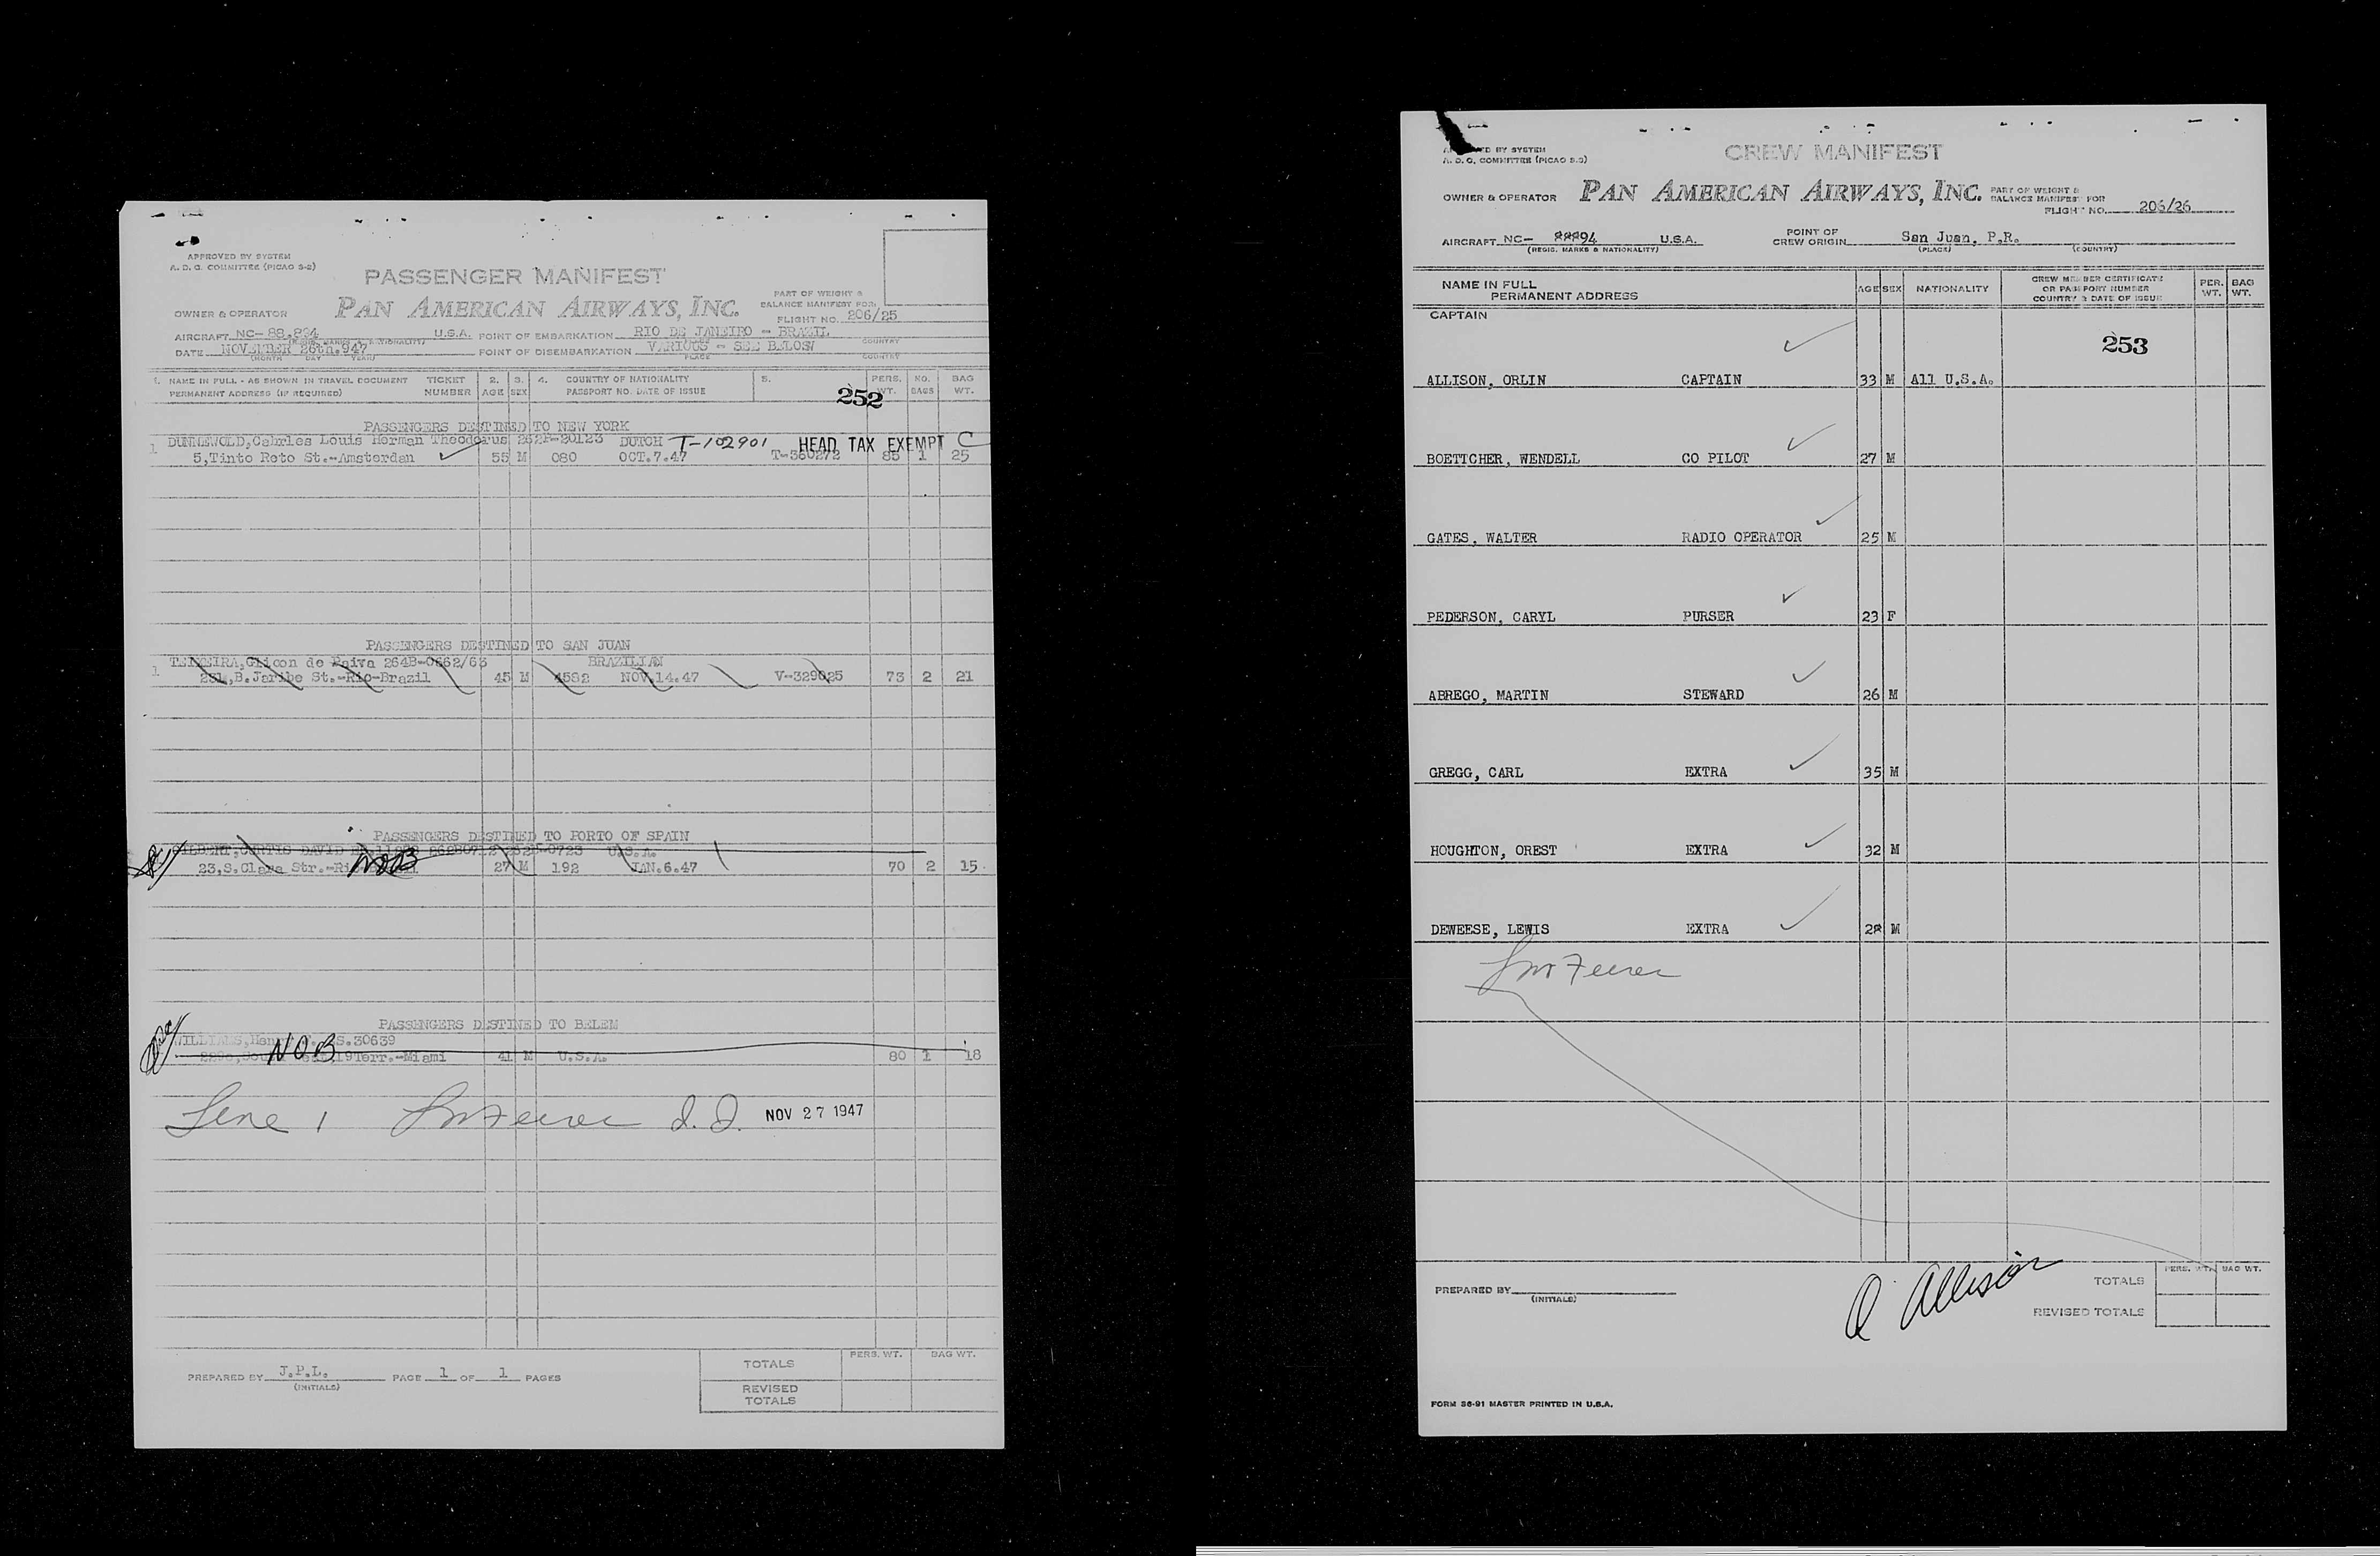 APPROVED BY SYSTEM
A. D. G. COMMITTEE (PICAO S-2)
PASSENGER MANIFEST
OWNER & OPERATOR PAN AMERICAN AIRWAYS, INC.
PART OF WEIGHT &
BALANCE MANIFEST FOR
FLIGHT NO. 206/25
AIRCRAFT NC-88,894 U.S.A. POINT OF EMBARKATION RIO DE JANEIRO - BRAZIL
COUNTRY
DATE NOVEMBER 26th.947 POINT OF DISEMBARKATION VARIOUS - SEE BELOW
(MONTH DAY YEAR) PLACE COUNTRY
1. NAME IN FULL - AS SHOWN IN TRAVEL DOCUMENT TICKET 2. 3. 4. COUNTRY OF NATIONALITY 5. PERS. NO. BAG
PERMANENT ADDRESS (IF REQUIRED) NUMBER AGE SEX PASSPORT NO. DATE OF ISSUE WT. BAGS WT.
252
PASSENGERS DESTINED TO NEW YORK
1 DUNNEWOLD,Cahrles Louis Herman Theodorus 262B-20123 DUTCH T-102901 HEAD TAX EXEMPT C
5,Tinto Reto St.-Amsterdan 55 M 080 OCT.7.47 T-360272 85 1 25
PASSENGERS DESTINED TO SAN JUAN
1 TEIXEIRA,Glicon de Paiva 264B-0662/63 BRAZILIAN
281,B.Jaribe St.-Rio-Brazil 45 M 4582 NOV.14.47 V-329025 73 2 21
PASSENGERS DESTINED TO PORTO OF SPAIN
GILBERT,CURTIS DAVID U.S.A.
23,S.Clara Str.-Rio NOB 27 M 192 JAN.6.47 70 2 15
PASSENGERS DESTINED TO BELEM
WILLIAMS,Henry S.30639
NOB 19Terr.-Miami 41 M U.S.A. 80 1 18
Line 1 I.I. NOV 27 1947
PREPARED BY J.P.L. PAGE 1 OF 1 PAGES
(INITIALS)
PERS. WT. BAG WT.
TOTALS
REVISED
TOTALS
BY SYSTEM
A. D. G. COMMITTEE (PICAO S-3)
CREW MANIFEST
OWNER & OPERATOR PAN AMERICAN AIRWAYS, INC.
PART OF WEIGHT &
BALANCE MANIFEST FOR
FLIGHT NO. 206/26
AIRCRAFT NC- 88894 U.S.A.
(REGIS. MARKS & NATIONALITY)
POINT OF
CREW ORIGIN San Juan, P.R.
(PLACE) (COUNTRY)
NAME IN FULL
PERMANENT ADDRESS
AGE SEX NATIONALITY
CREW MEMBER CERTIFICATE
OR PASSPORT NUMBER
COUNTRY & DATE OF ISSUE
PER. WT.
BAG WT.
CAPTAIN
253
ALLISON, ORLIN CAPTAIN 33 M All U.S.A.
BOETTCHER, WENDELL CO PILOT 27 M
GATES, WALTER RADIO OPERATOR 25 M
PEDERSON, CARYL PURSER 23 F
ABREGO, MARTIN STEWARD 26 M
GREGG, CARL EXTRA 35 M
HOUGHTON, OREST EXTRA 32 M
DEWEESE, LEWIS EXTRA 28 M
PREPARED BY
(INITIALS)
O Allison
PERS. WT. BAG WT.
TOTALS
REVISED TOTALS
FORM 36-91 MASTER PRINTED IN U.S.A.